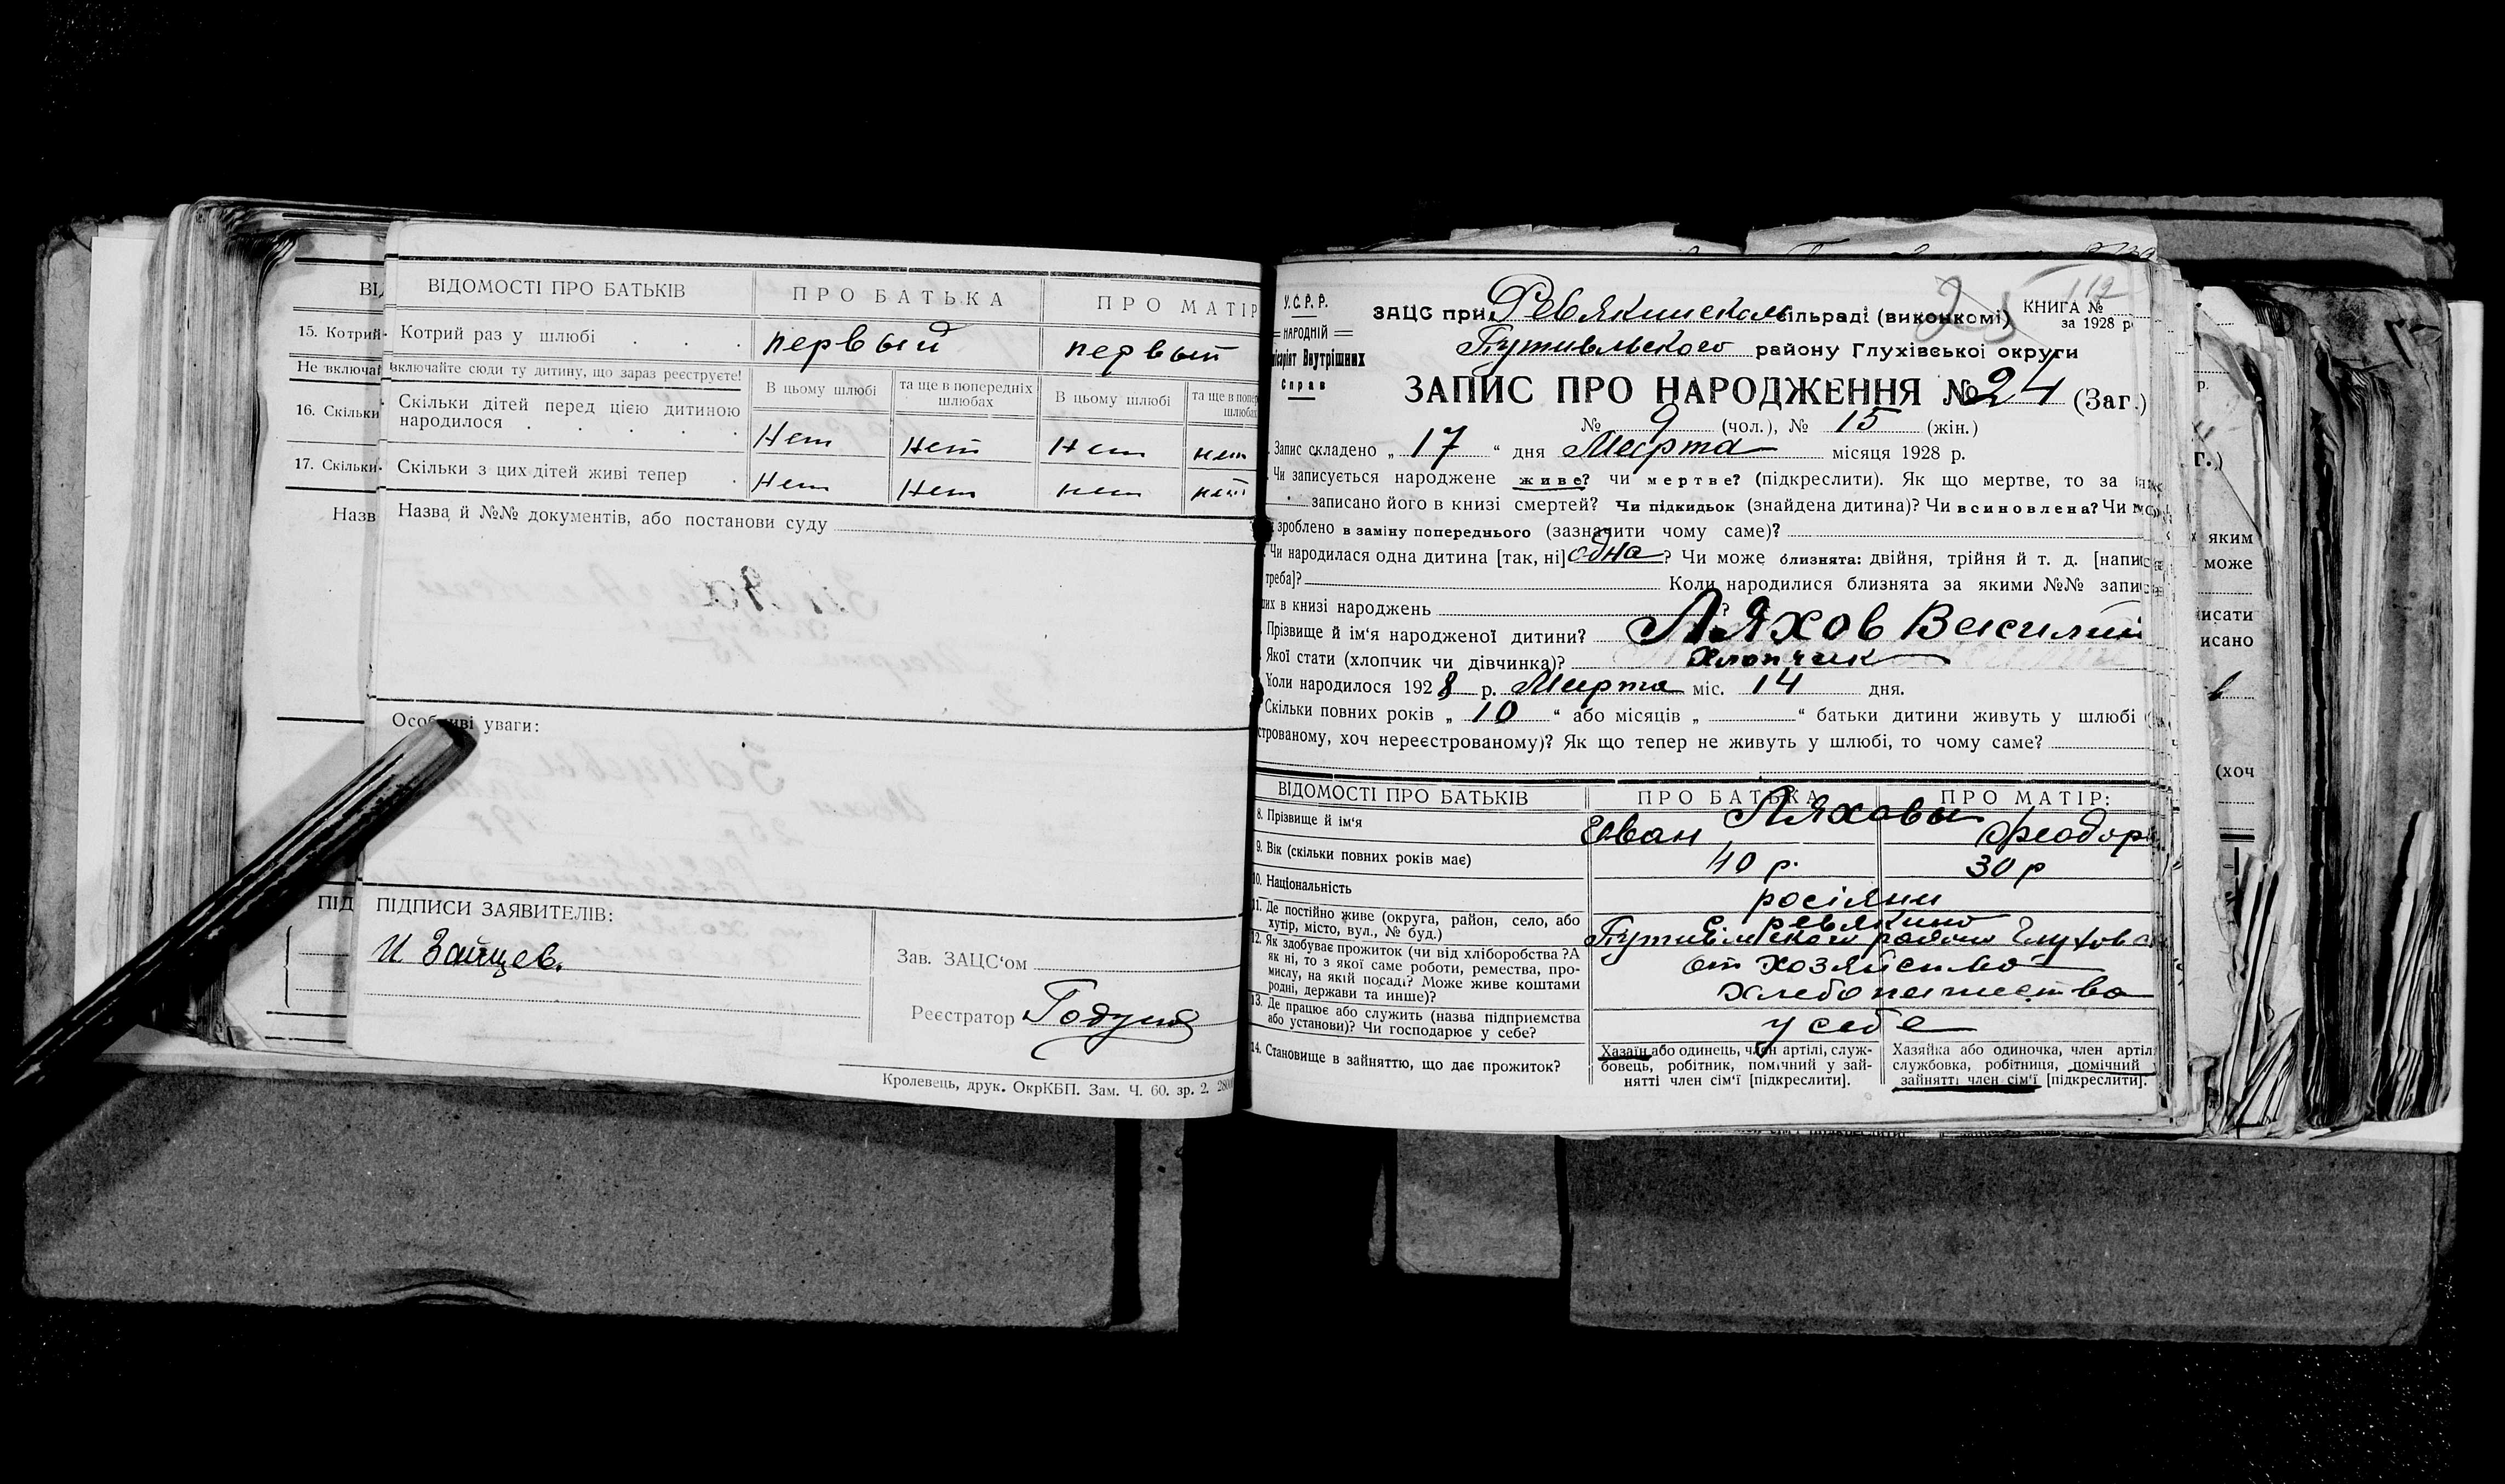 ВІДОМОСТІ ПРО БАТЬКІВ
ПРО БАТЬКА
ПРО МАТІР
15. Котрий
Котрий раз у шлюбі
первый
первый
Не включай
включайте сюди ту дитину, що зараз реєструєте!
В цьому шлюбі
та ще в попередніх шлюбах
В цьому шлюбі
та ще в попер
шлюбах
16. Скільки
Скільки дітей перед цією дитиною
народилося
Нет
Нет
Нет
нет
17. Скільки
Скільки з цих дітей живі тепер
Нет
Нет
нет
нет
Назв
Назва й №№ документів, або постанови суду
Особливі уваги:
ПІД
ПІДПИСИ ЗАЯВИТЕЛІВ:
И Зайцев.
Зав. ЗАЦС‘ом
Реєстратор
Кролевець, друк. ОкрКБП. Зам. Ч. 60. зр. 2.
У.С.Р.Р.
НАРОДНІЙ
Внутрішних
Справ
ЗАЦС при Ревякинском сільраді (виконкомі)
25
112
КНИГА №
за 1928 р
Путивльского району Глухівської округи
ЗАПИС ПРО НАРОДЖЕННЯ № 24 (Заг.)
№ 9 (чол.), № 15 (жін.)
Запис складено „ 17 “ дня Марта місяця 1928 р.
Чи записується народжене живе? чи мертве? (підкреслити). Як що мертве, то за
записано його в книзі смертей? Чи підкидьок (знайдена дитина)? Чи всиновлена? Чи
зроблено в заміну попереднього (зазначити чому саме)?
Чи народилася одна дитина [так, ні] одна? Чи може близнята: двійня, трійня й т. д. [напис
треба]? Коли народилися близнята за якими №№ запис
них в книзі народжень ?
Прізвище й ім‘я народженої дитини? Ляхов Василий
Якої стати (хлопчик чи дівчинка)? хлопчик
Коли народилося 1928 р. Марта міс. 14 дня.
Скільки повних років „ 10 “ або місяців „ “ батьки дитини живуть у шлюбі (
строваному, хоч нереєстрованому)? Як що тепер не живуть у шлюбі, то чому саме?
ВІДОМОСТІ ПРО БАТЬКІВ
ПРО БАТЬКА
ПРО МАТІР:
8. Прізвище й ім‘я
Ляховы
Иван
Феодор
9. Вік (скільки повних років має)
40 р.
30 р
10. Національність
росіяни
11. Де постійно живе (округа, район, село, або
хутір, місто, вул., № буд.)
с. ревякино
Путивльского району Глухов
12. Як здобуває прожиток (чи від хліборобства? А
як ні, то з якої саме роботи, ремества, про-
мислу, на якій посаді? Може живе коштами
родні, держави та инше)?
от хозяйства
хлебопашества
13. Де працює або служить (назва підприємства
або установи)? Чи господарює у себе?
у себе
14. Становище в зайняттю, що дає прожиток?
Хазаїн або одинець, член артілі, служ-
бовець, робітник, помічний у зай-
нятті член сім‘ї [підкреслити].
Хазяйка або одиночка, член артіл
службовка, робітниця, помічний
зайнятті член сім‘ї [підкреслити].
яким
може
исати
исано
(хоч